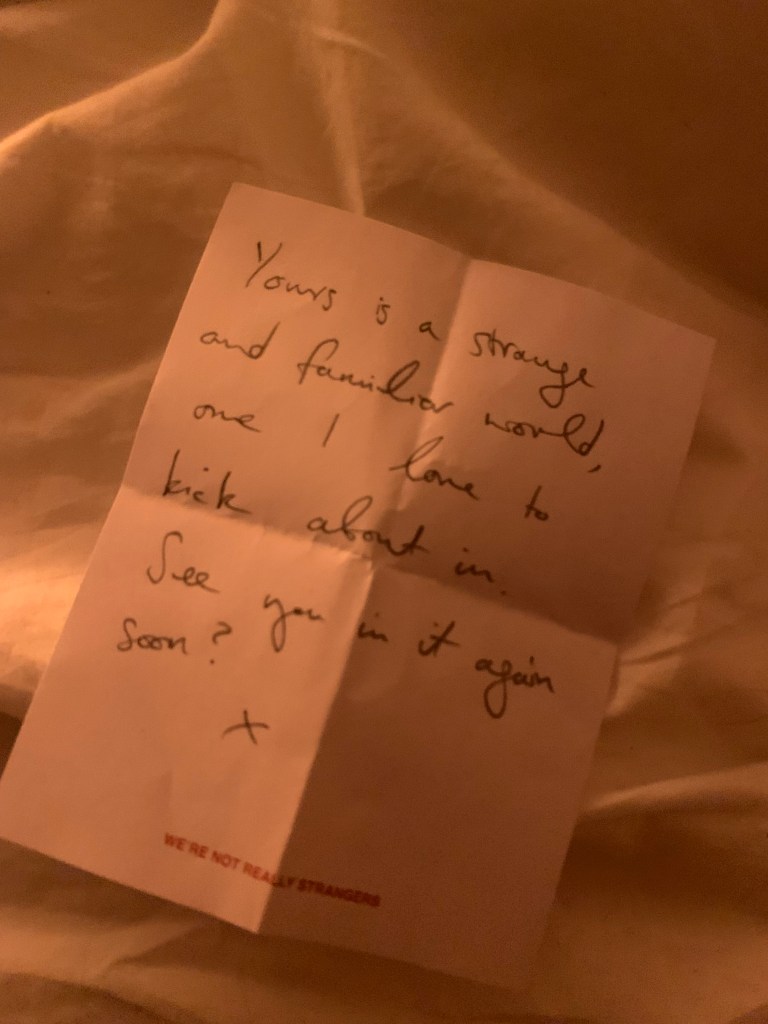 Yours is a strange
and familiar world,
one I love to
kick about in.
See you in it again
soon?
x
WE'RE NOT REALLY STRANGERS